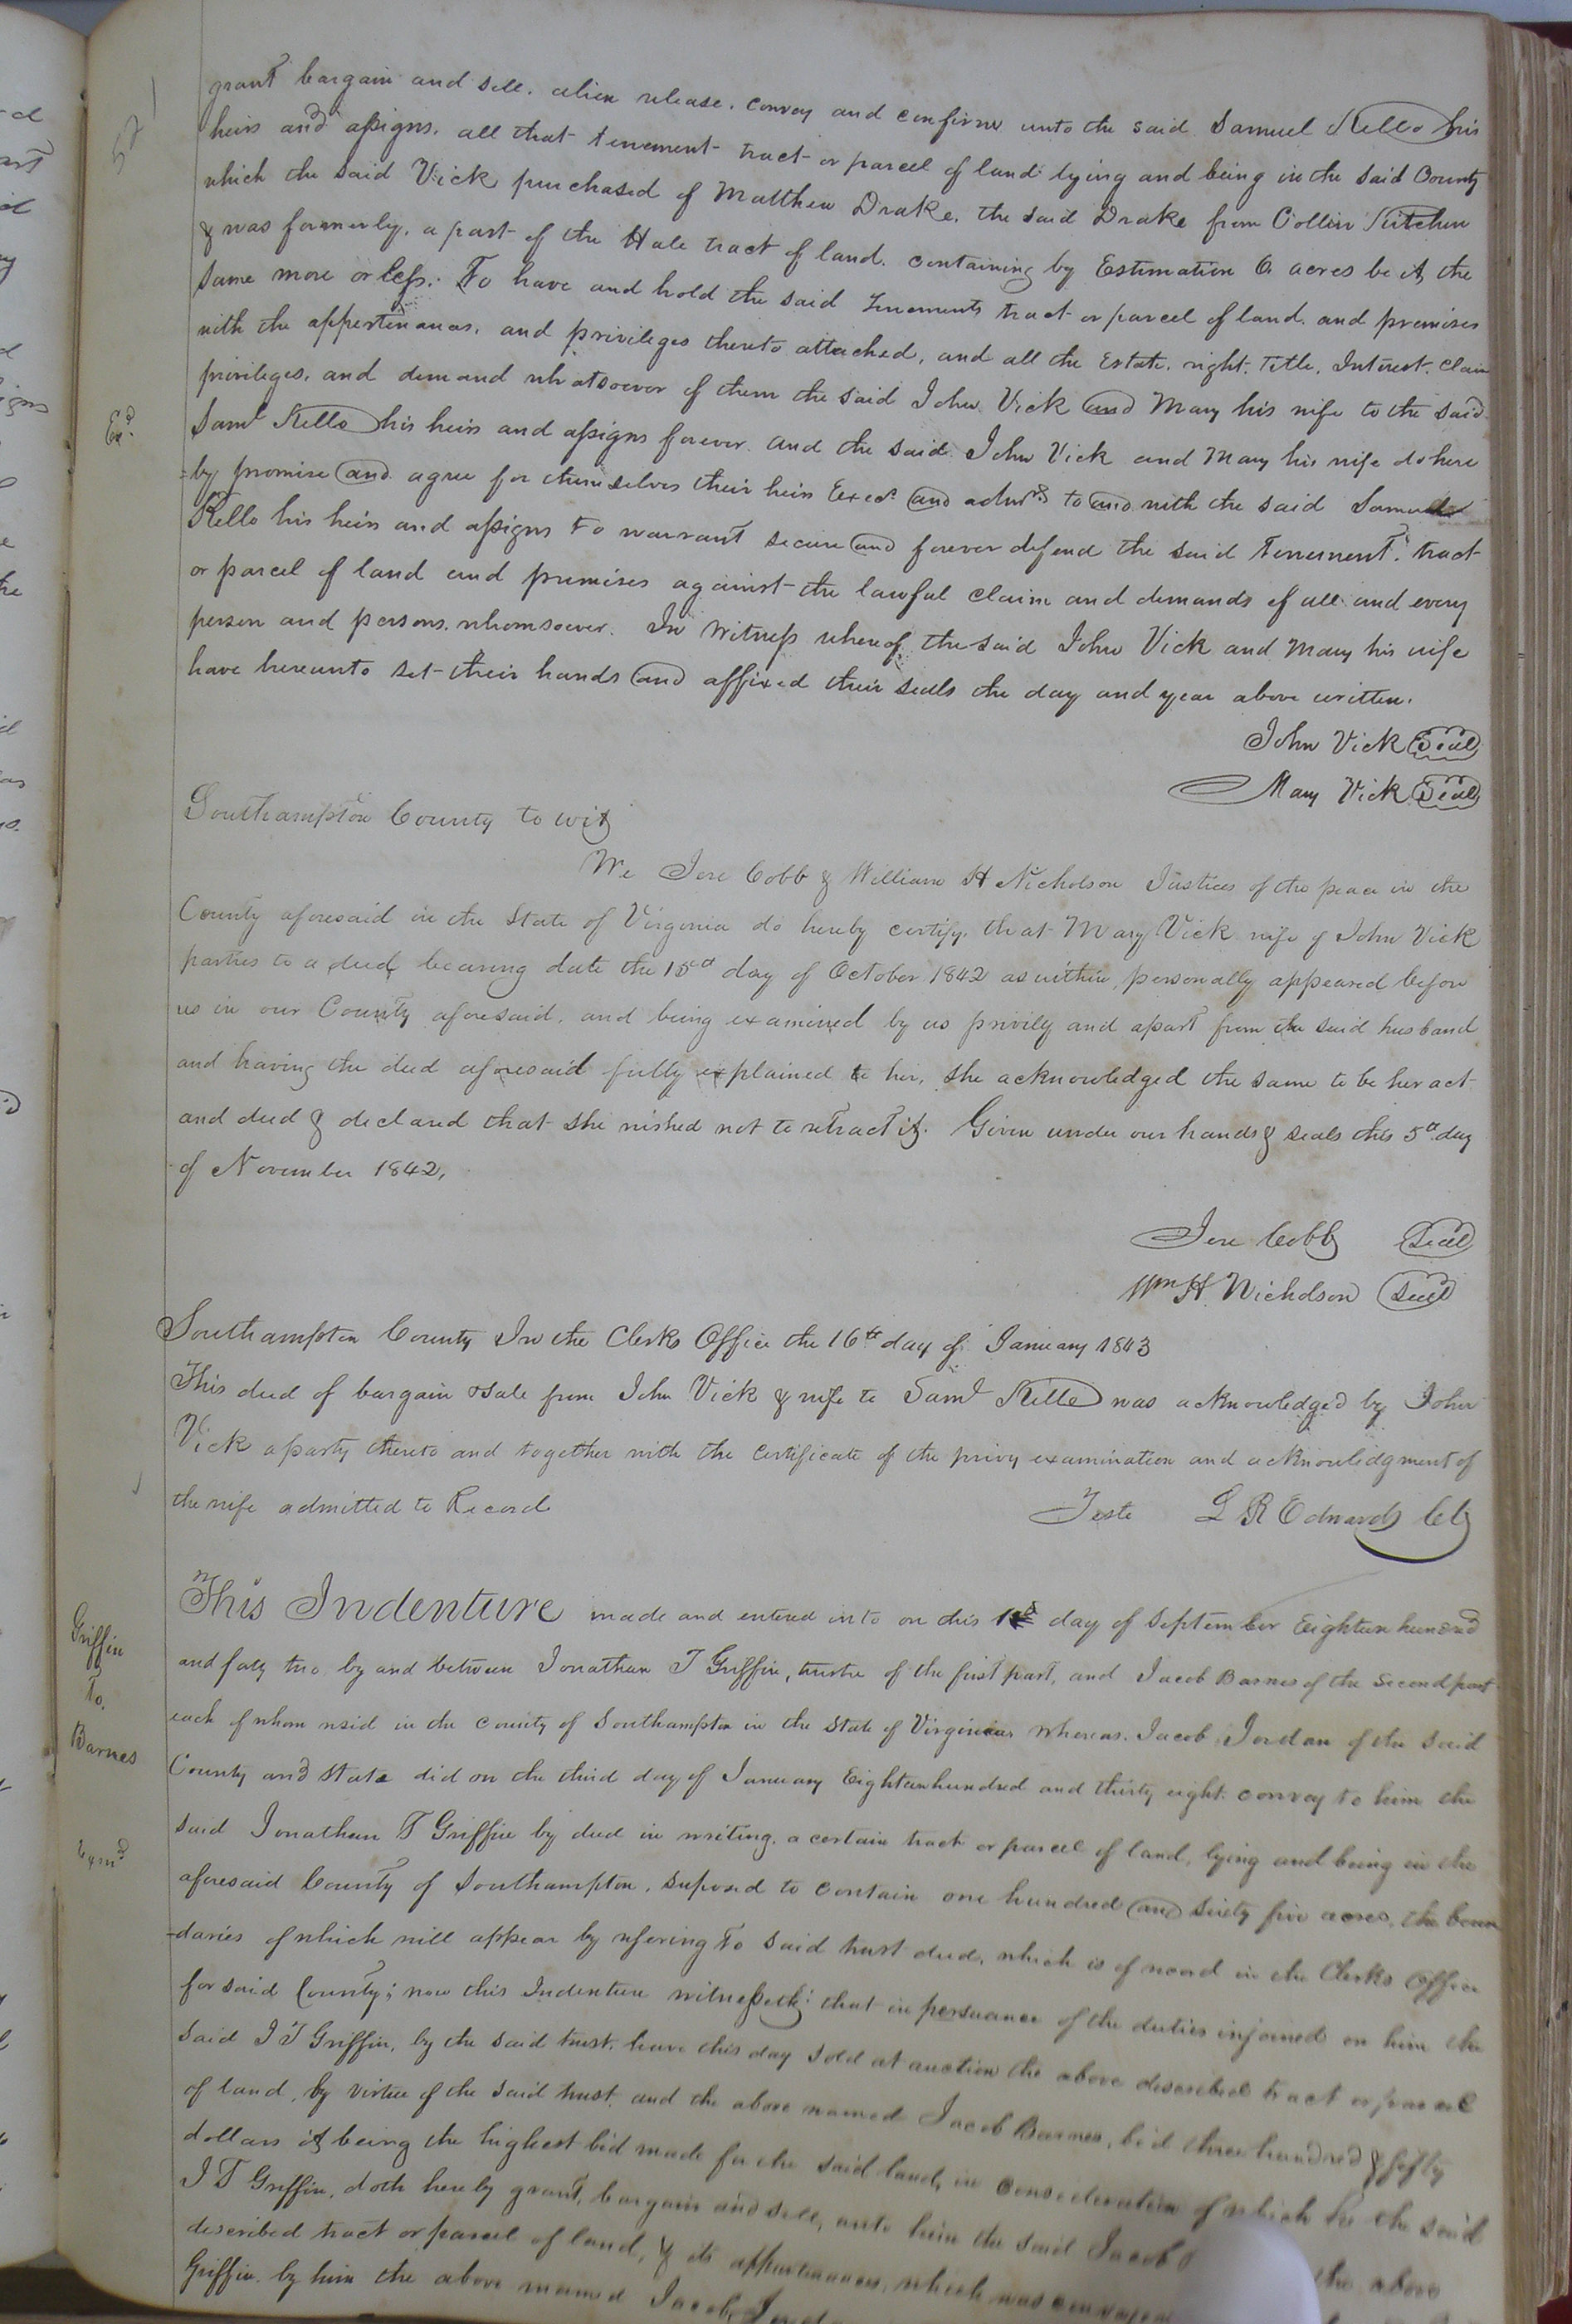 grant bargain and sell. alien release. convey and confirm unto the said Samuel Kello his
heirs and assigns. all that tenement tract or parcel of land lying and being in the said County
which the said Vick purchased of Matthew Drake. the said Drake from Collin Kitchen
& was formerly. a part of the Hale tract of land. containing by Estimation 6. acres be it, the
same more or less. To have and hold the said Tenements tract or parcel of land. and premises
with the appertenances. and privileges thereto attached, and all the Estate. right. title. Interest. Claim
privileges. and demand whatsoever of them the said John Vick and Mary his wife to the said
Saml Kello his heirs and assigns forever. and the said John Vick and Mary his wife do here
=by promise and agree for themselves their heirs Exects and admrs to and with the said Samuel
Kello his heirs and assigns to warrant secure and forever defend the said Tenement. tract
or parcel of land and premises against the lawful claim and demands of all and every
person and persons. whomsoever. In Witness whereof the said John Vick and Mary his wife
have hereunto set their hands and affixed their seals the day and year above written.
John Vick Seal
Mary Vick Seal
Southampton County to wit
We Jere Cobb & William H Nicholson Justices of the peace in the
County aforesaid in the State of Virginia do hereby certify. that Mary Vick wife of John Vick
parties to a deed, bearing date the 15th day of October 1842 as within, personally appeared before
us in our County aforesaid. and being examined by us privily and apart from the said husband
and having the deed aforesaid fully explained to her, she acknowledged the same to be her act
and deed & declared that she wished not to retract it. Given under our hands & seals this 5th day
of November 1842,
Jere Cobb Seal
Wm H. Nicholson Seal
Southampton County In the Clerks Office the 16th day of January 1843
This deed of bargain & sale from John Vick & wife to Saml Kello was acknowledged by John
Vick a party thereto and together with the Certificate of the privy examination and acknowledgment of
the wife admitted to Record
Teste L R Edwards Clk
Exd
Griffin
To.
Barnes
Examd
This Indenture made and entered into on this day of September Eighteen hundred
and forty two. by and between Jonathan T Griffin, trustee of the first part, and Jacob Barnes of the Second part
each of whom resid in the County of Southampton in the State of Virginia whereas. Jacob Jordan of the said
County and State did on the third day of January Eighteen hundred and thirty eight. convey to him the
said Jonathan T Griffin by deed in writing. a certain tract or parcel of land, lying and being in the
aforesaid County of Southampton. suposed to contain one hundred and sixty five acres, the boun
-daries of which will appear by refering to said trust deed, which is of record in the Clerks Office
for said County; now this Indenture witnesseth: that in persuance of the duties injoined on him the
said J T Griffin, by the said trust. have this day sold at auction the above described tract or parcel
of land, by virtue of the said trust. and the above named Jacob Barnes, bid three hundred & fifty
dollars it being the highest bid made for the said land, in consideration of which he the said
J T Griffin, doth hereby grant, bargain and sell, unto him the said Jacob the above
described tract or parcel of land, & its appurtenances, which was conveyed
Griffin. by him the above named Jacob